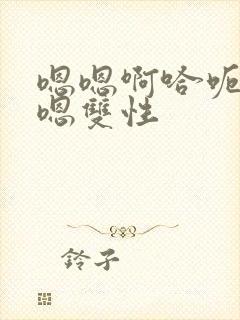 嗯嗯啊哈呃
嗯雙性
鈴子